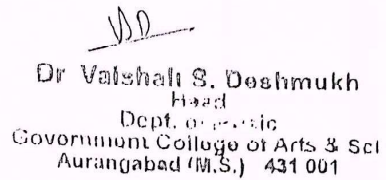 Dr Vaishali S. Deshmukh
Head
Dept. of Music
Government College of Arts & Sci
Aurangabad (M.S.) 431 001